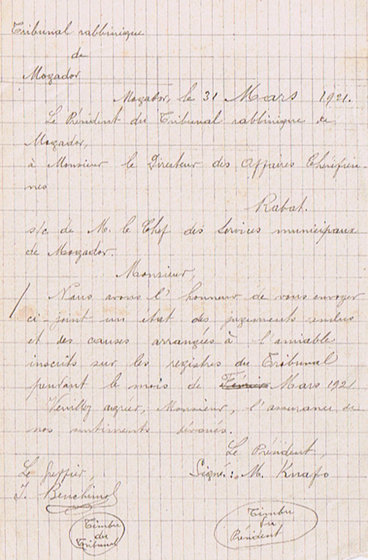 Tribunal rabbinique
de
Mogador
Mogador, le 31 Mars 1921.
Le Président du Tribunal rabbinique de
Mogador,
à Monsieur le Directeur des Affaires Chérifien-
nes
Rabat.
s/c de M. le Chef des Services municipaux
de Mogador.
Monsieur,
Nous avons l'honneur de vous envoyer
ci-joint un état des jugements rendus
et des causes arrangées à l'amiable
inscrits sur les registres du Tribunal
pendant le mois de Mars 1921
Veuillez agréer, Monsieur, l'assurance de
nos sentiments dévoués.
Le Président,
Le greffier
Signé: M. Knafo
J. Benchimol
Timbre
du
Tribunal
Timbre
du
Président